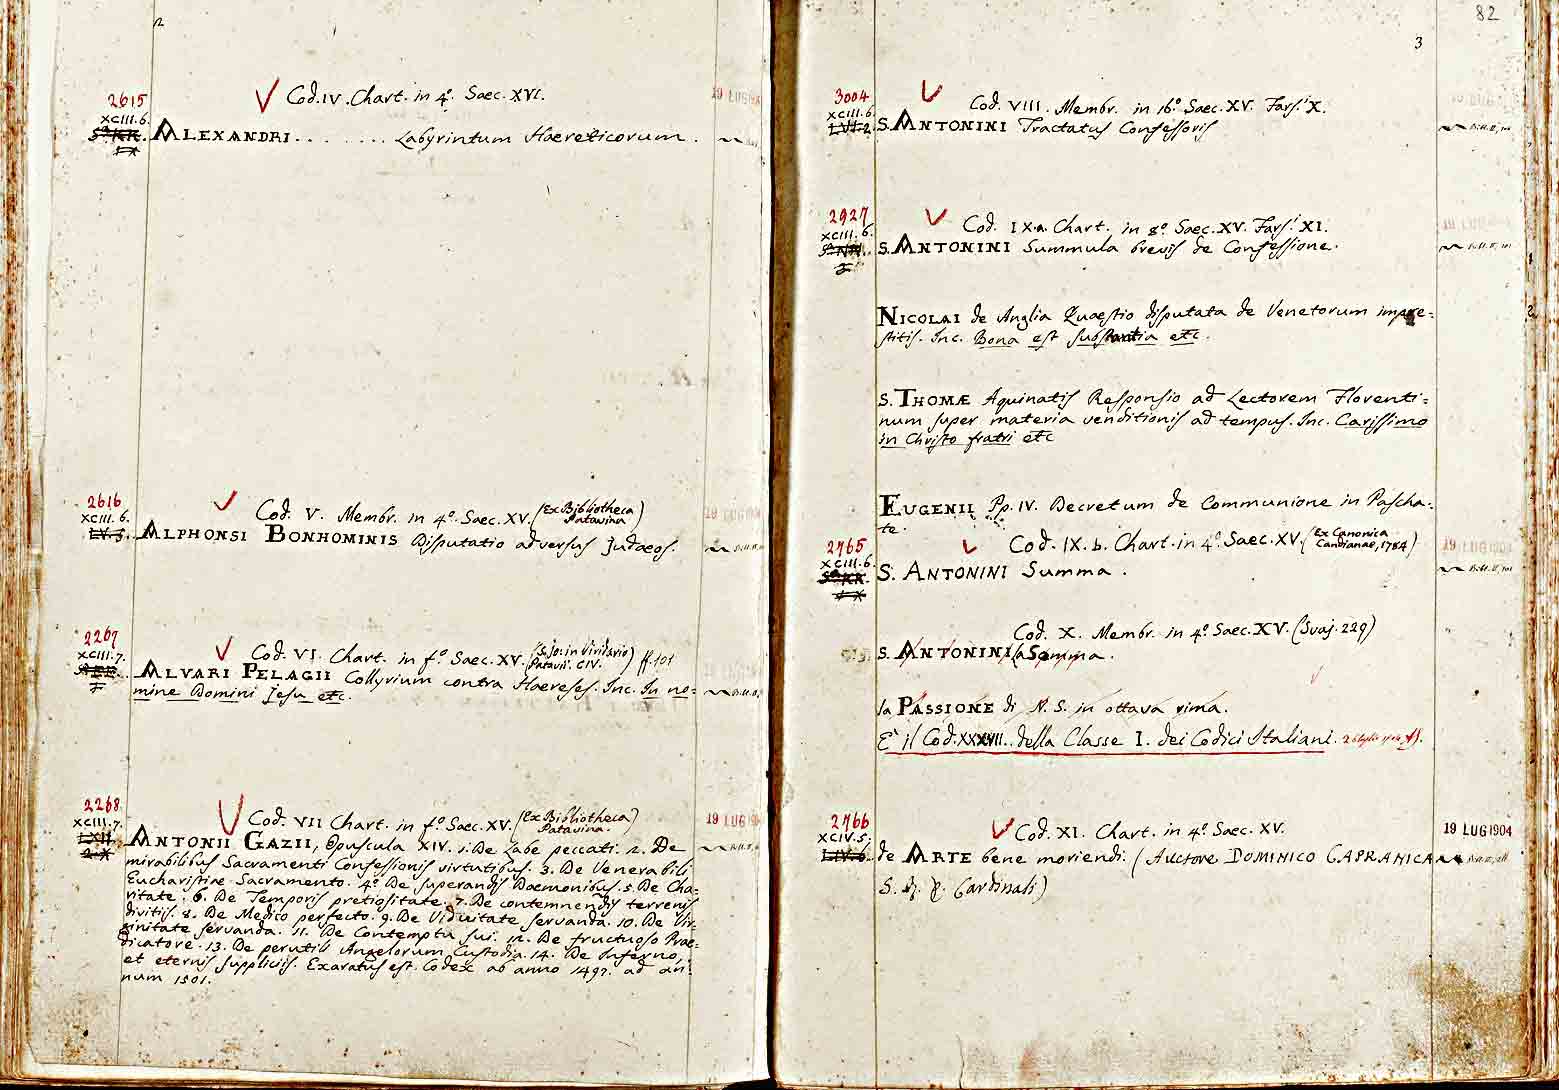 2
2615
Cod. IV. Chart. in 4º. Saec. XVI.
19 LUG
XCIII. 6.
ALEXANDRI . . . . . . . . Labyrintum Haereticorum.
2616
Cod. V. Membr. in 4º. Saec. XV. (Ex Bibliotheca Patavina)
19 LUG
XCIII. 6.
LV.3.
ALPHONSI BONHOMINIS Disputatio adversus Judaeos.
2267
Cod. VI. Chart. in fº. Saec. XV. (S. Jo: in Viridario Patavii. CIV.) ff. 101
XCIII. 7.
ALVARI PELAGII Collyrium contra Haereses. Inc. In no=
mine Domini Jesu etc.
2268
Cod. VII Chart. in fº. Saec. XV. (Ex Bibliotheca Patavina.)
19 LUG
XCIII. 7.
ANTONII GAZII, Opuscula XIV. 1. De Labe peccati. 2. De
mirabilibus Sacramenti Confessionis virtutibus. 3. De Venerabili
Eucharistiae Sacramento. 4º. De superandis Daemonibus. 5. De Cha=
ritate. 6. De Temporis pretiositate. 7. De contemnendis terrenis
divitiis. 8. De Medico perfecto. 9. De Viduitate servanda. 10. De Vir=
ginitate servanda. 11. De Contemptu sui. 12. De fructuoso Prae=
dicatore. 13. De perutili Angelorum Custodia. 14. De Inferno,
et eternis suppliciis. Exaratus est Codex ab anno 1497. ad an=
num 1501.
82
3
3004
Cod. VIII. Membr. in 16º. Saec. XV. Fars.i X.
XCIII. 6.
LVI.2.
S. ANTONINI Tractatus Confessoris
2927
Cod. IX.a. Chart. in 8º. Saec. XV. Fars.i XI.
XCIII. 6.
S. ANTONINI Summula brevis de Confessione.
NICOLAI de Anglia Quaestio disputata de Venetorum impre=
stitis. Inc. Bona est substantia etc.
S. THOMÆ Aquinatis Responsio ad Lectorem Florenti=
num super materia venditionis ad tempus. Inc. Carissimo
in Christo fratri etc
EUGENII Pp. IV. Decretum de Communione in Pascha=
te.
2765
Cod. IX. b. Chart. in 4º. Saec. XV. (Ex Canonica Candianae, 1784)
19 LUG
XCIII. 6.
S. ANTONINI Summa.
Cod. X. Membr. in 4º. Saec. XV. (Svaj. 229)
S. ANTONINI la Somma.
la PASSIONE di N. S. in ottava rima.
E' il Cod. XXXVII. della Classe I. dei Codici Italiani.
2766
Cod. XI. Chart. in 4º. Saec. XV.
19 LUG 1904
XCIV. 5.
LIV.6.
de ARTE bene moriendi. (Auctore DOMINICO CAPRANICA
S. R. E. Cardinali)